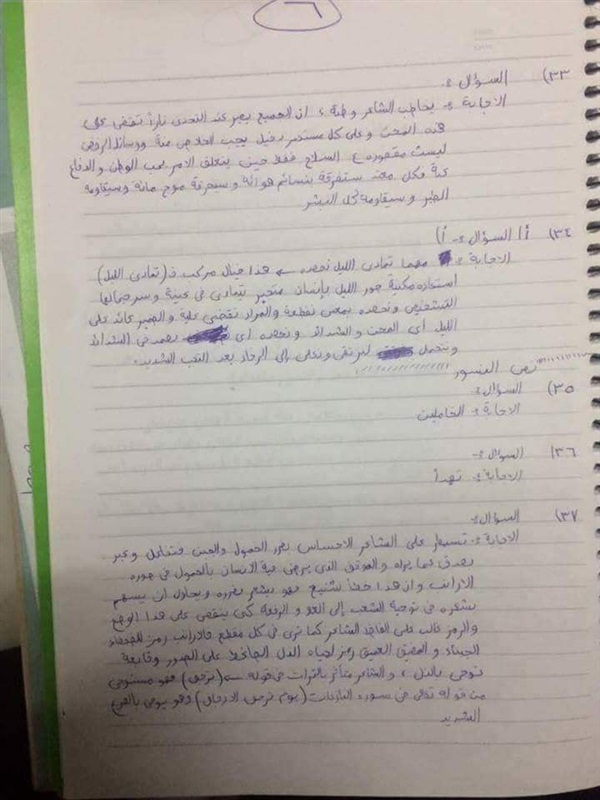 ٦
٣٣) السؤال :-
الاجابة :- يخاطب الشاعر وطنه ، ان الجميع يعبر عند التحدى ناراً تقضى على
هذه المحن وعلى كل مستعمر دخيل يجب الخلاص منه ووسائل الرفض
ليست مقصوره ع السلاح فقط حين يتعلق الامر بحب الوطن والدفاع
عنه فكل معتد ستغرقه بنسائم هوائه وسيغرقه موج مائه وسيقاومه
الطير وسيقاومه كل البشر
٣٤) أ] السؤال :- أ)
الاجابة :- مهما تمادى الليل نحصده ← هذا خيال مركب فـ (تمادى الليل)
استعاره مكنية صور الليل بإنسان متجبر يتمادى فى غيه وسر جمالها
التشخيص ونحصده بمعنى نقطعه والمراد نقضى عليه والضمير عائد على
الليل أى المحن والشدائد ونحصده أى نصمد فى الشدائد
ونتحمل لنرتقى ونصل إلى الرخاء بعد التعب الشديد.
نص النسور
٣٥) السؤال :-
الاجابة :- الخاملين
٣٦) السؤال :-
الاجابة :- تهدأ
٣٧) السؤال :-
الاجابة :- تسيطر على الشاعر الاحساس بضرر الخمول والجبن فتفاعل وعبر
بصدق عما يراه والموقف الذى يرضى فيه الانسان بالخمول فى صوره
الارانب وان هذا خطأ شنيع فهو يشعر بضرره ويحاول ان يسهم
بشعره فى توجيه الشعب إلى العلو والرفعه كى ينقض على هذا الوضع
والرمز غالب على الفاظ الشاعر كما نرى فى كل مقطع فالارانب رمز للضعفاء
الجبناء و العميق رمز لحياه الذل الجاثم على الصدور وقابعة
توحى بالذل ، والشاعر متأثر بالتراث فى قوله ← (ترجف) فهو مستوحى
من قوله تعالى فى سوره النازعات (يوم ترجف الراجفة) وهو يوحى بالفزع
الشديد